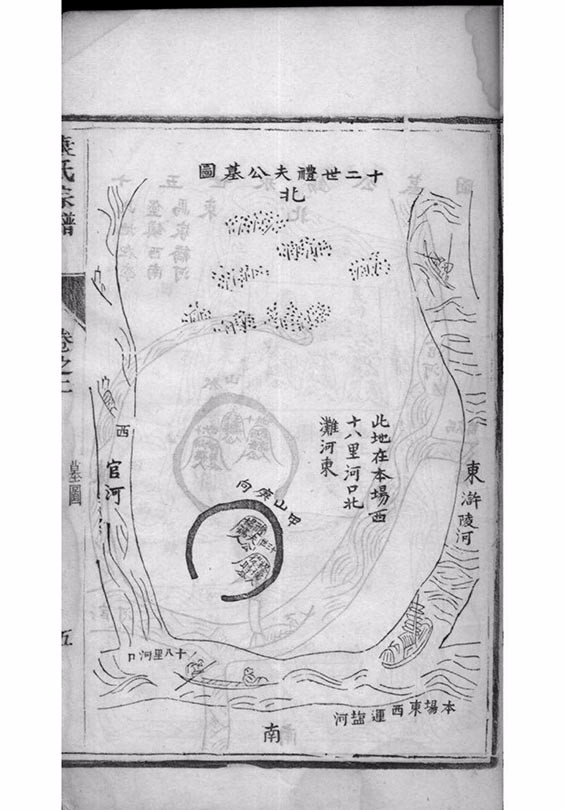 十二世禮夫公墓圖
北
此地在本場西
十八里河口北
灘河東
東
滸陵河
西
官河
甲山庚向
十八里河口
本場東西運鹽河
南
氏宗譜
卷之二
墓圖
五